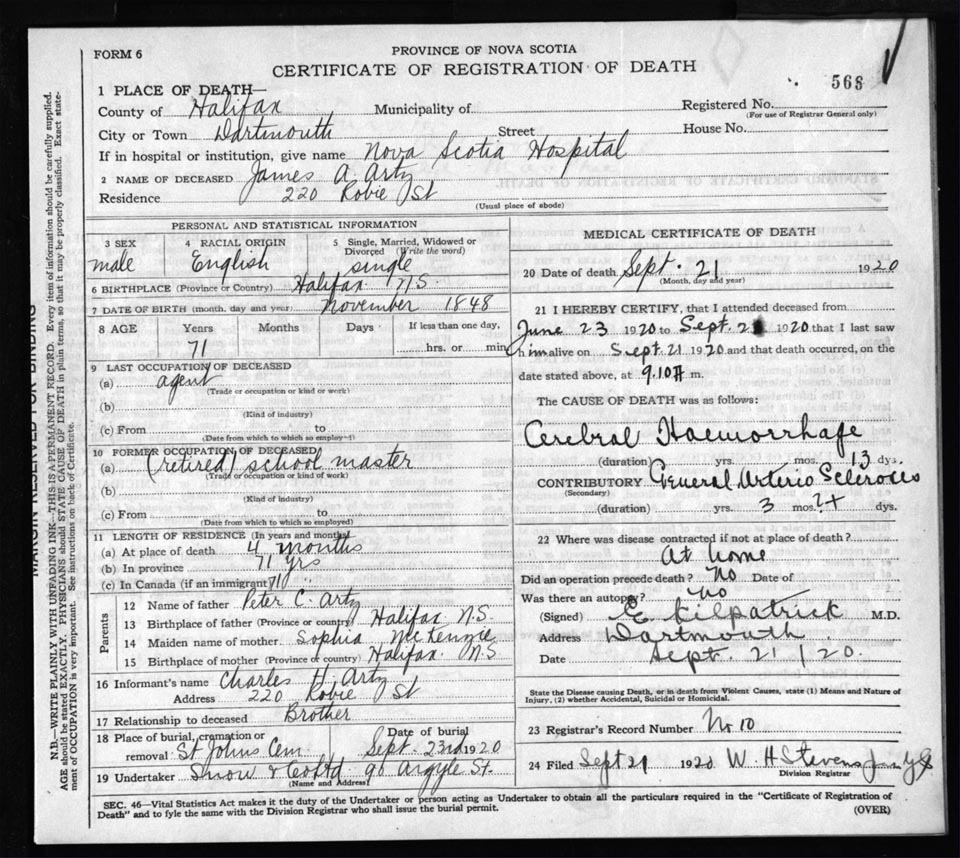 FORM 6
PROVINCE OF NOVA SCOTIA
CERTIFICATE OF REGISTRATION OF DEATH
568
1 PLACE OF DEATH—
County of Halifax Municipality of Registered No.
(For use of Registrar General only)
City or Town Dartmouth Street House No.
If in hospital or institution, give name Nova Scotia Hospital
2 NAME OF DECEASED James A Artz
Residence 220 Robie St
(Usual place of abode)
PERSONAL AND STATISTICAL INFORMATION
3 SEX 4 RACIAL ORIGIN 5 Single, Married, Widowed or Divorced (Write the word)
male English single
6 BIRTHPLACE (Province or Country) Halifax N.S.
7 DATE OF BIRTH (month, day and year) November 1848
8 AGE Years Months Days If less than one day,
71 hrs. or min
9 LAST OCCUPATION OF DECEASED
(a) agent
(Trade or occupation or kind of work)
(b)
(Kind of industry)
(c) From to
(Date from which to which so employed)
10 FORMER OCCUPATION OF DECEASED
(a) (retired) school master
(Trade or occupation or kind of work)
(b)
(Kind of industry)
(c) From to
(Date from which to which so employed)
11 LENGTH OF RESIDENCE (In years and months)
(a) At place of death 4 months
(b) In province 71 yrs
(c) In Canada (if an immigrant) 71 "
Parents
12 Name of father Peter C. Artz
13 Birthplace of father (Province or country) Halifax N.S.
14 Maiden name of mother Sophia McKenzie
15 Birthplace of mother (Province or country) Halifax. N.S
16 Informant's name Charles H. Artz
Address 220 Robie St
17 Relationship to deceased Brother
18 Place of burial, cremation or removal St Johns Cem Date of burial Sept. 23rd 1920
19 Undertaker Snow & Co Ltd 90 Argyle St.
(Name and Address)
MEDICAL CERTIFICATE OF DEATH
20 Date of death Sept. 21 1920
(Month, day and year)
21 I HEREBY CERTIFY, that I attended deceased from
June 23 1920 to Sept. 21 1920 that I last saw
him alive on Sept. 21 1920 and that death occurred, on the
date stated above, at 9.10 A m.
The CAUSE OF DEATH was as follows:
Cerebral Haemorrhage
(duration) yrs. mos. 13 dys.
CONTRIBUTORY General Arterio Sclerosis
(Secondary)
(duration) yrs. 3 mos. ?+ dys.
22 Where was disease contracted if not at place of death?
At home
Did an operation precede death? No Date of
Was there an autopsy? No
(Signed) E Kilpatrick M.D.
Address Dartmouth.
Date Sept. 21/20.
State the Disease causing Death, or in death from Violent Causes, state (1) Means and Nature of
Injury, (2) whether Accidental, Suicidal or Homicidal.
23 Registrar's Record Number No 10
24 Filed Sept 21 1920 W. H Stevens
Division Registrar
SEC. 46—Vital Statistics Act makes it the duty of the Undertaker or person acting as Undertaker to obtain all the particulars required in the "Certificate of Registration of
Death" and to fyle the same with the Division Registrar who shall issue the burial permit.
(OVER)
MARGIN RESERVED FOR BINDING
N.B.—WRITE PLAINLY WITH UNFADING INK—THIS IS A PERMANENT RECORD. Every item of information should be carefully supplied.
AGE should be stated EXACTLY. PHYSICIANS should STATE CAUSE OF DEATH in plain terms, so that it may be properly classified. Exact state-
ment of OCCUPATION is very important. See instructions on back of Certificate.